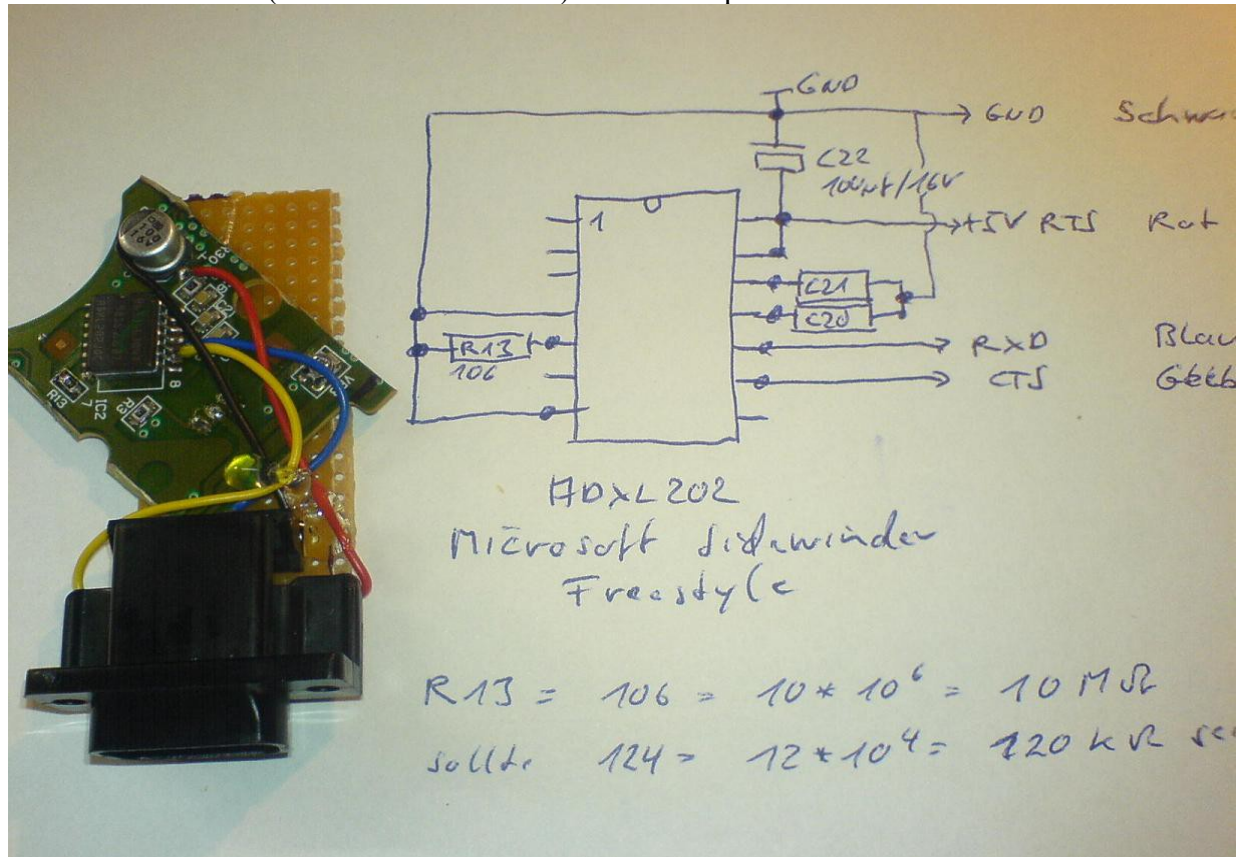 GND
GND Schwa
C22
100µF/16V
1
+5V RTS Rot
C21
C20
R13
106
RXD Blau
CTS Gelb
ADXL202
Microsoft Sidewinder
Freestyle
R13 = 106 = 10 * 10⁶ = 10 MΩ
sollte 124 = 12 * 10⁴ = 120 kΩ se
100
16V
C2
R13
7
IC2
R3
8